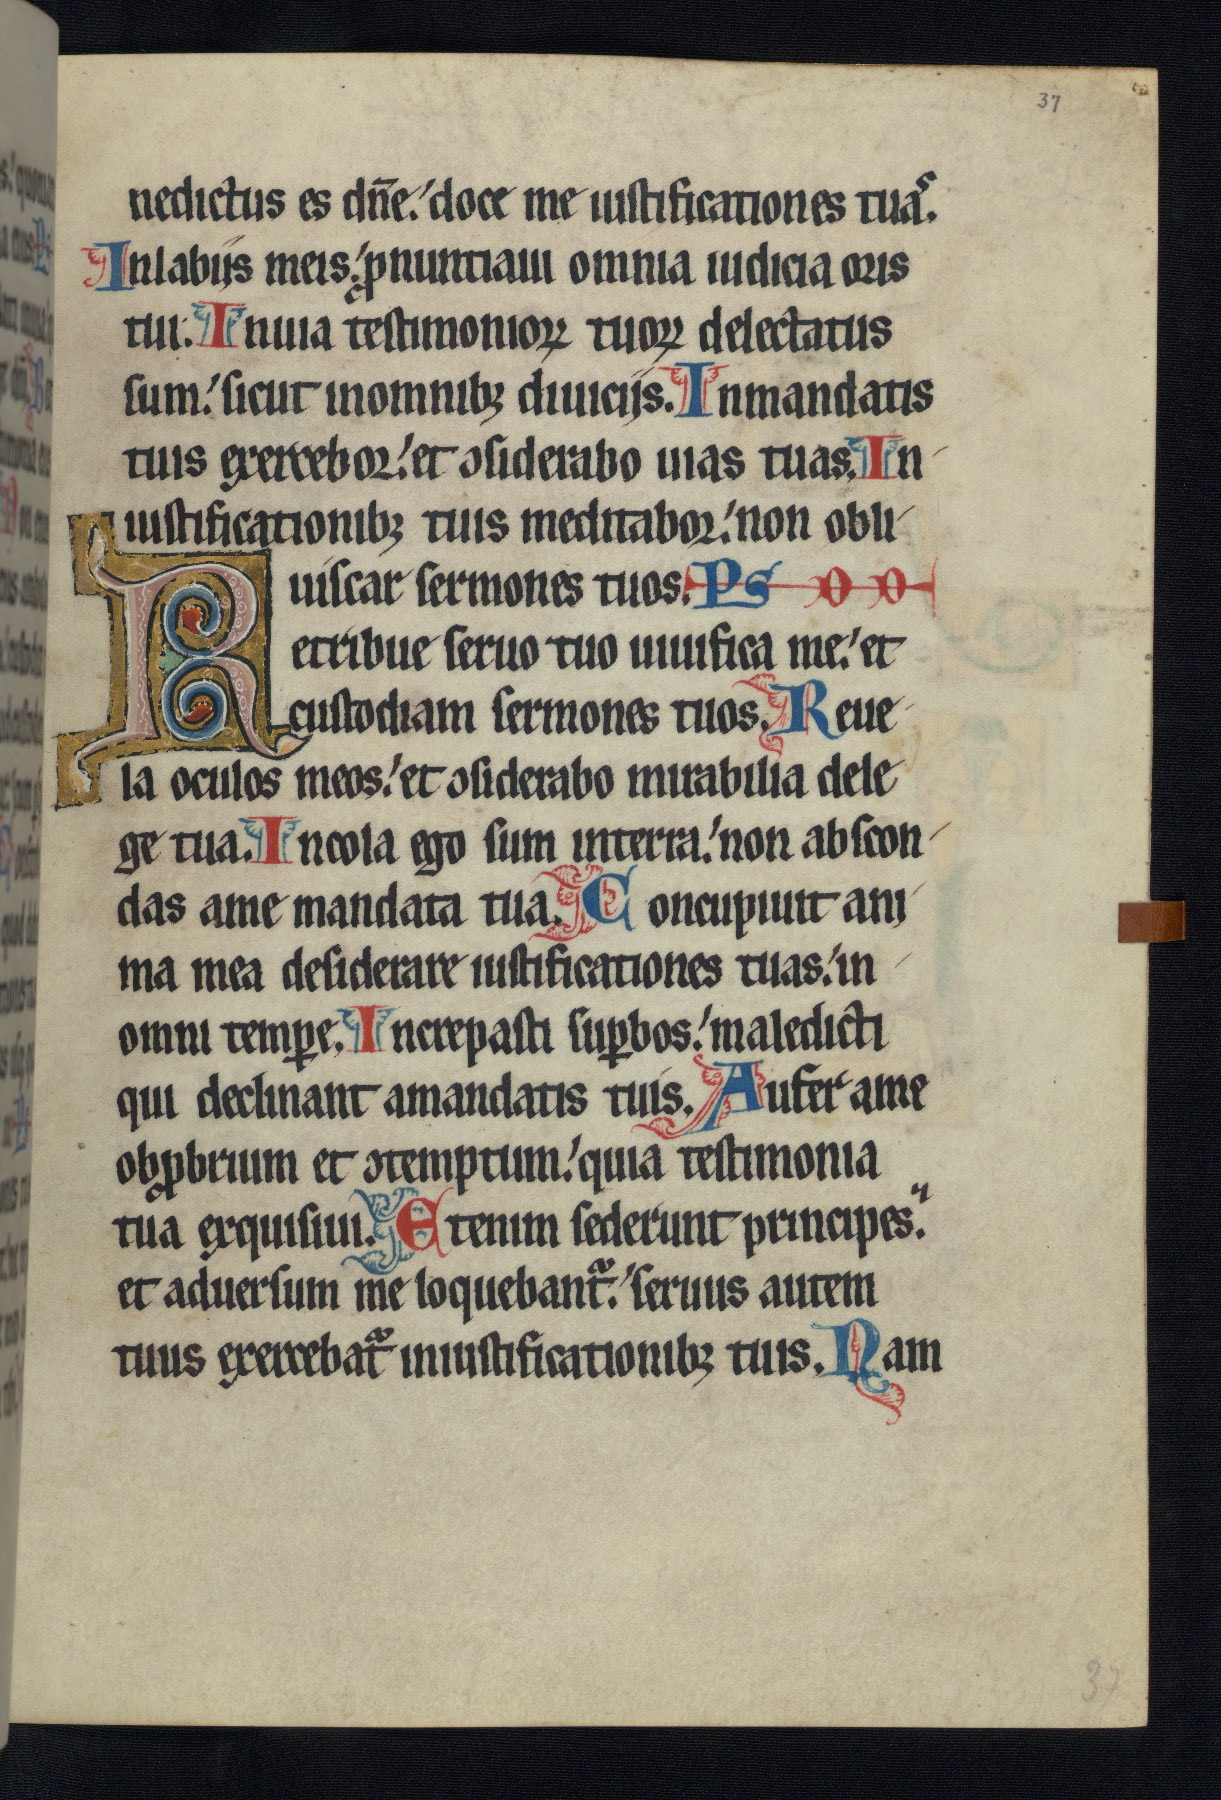 37
nedictus es dn̄e. doce me iustificationes tuas.
Inlabijs meis. ꝓnuntiaui omnia iudicia oris
tui. Inuia testimonioꝝ tuoꝝ delectatus
sum. sicut inomnibꝫ diuicijs. Inmandatis
tuis exercebor. et ↄsiderabo uias tuas. In
iustificationibꝫ tuis meditabor. non obli
uiscar sermones tuos. Ps
Retribue seruo tuo uiuifica me. et
custodiam sermones tuos. Reue
la oculos meos. et ↄsiderabo mirabilia dele
ge tua. Incola ego sum interra. non abscon
das ame mandata tua. Concupiuit ani
ma mea desiderare iustificationes tuas. in
omni temꝑe. Increpasti suꝑbos. maledicti
qui declinant amandatis tuis. Aufer ame
obꝓbrium et ↄtemptum. quia testimonia
tua exquisiui. Etenim sederunt principes.
et aduersum me loquebantᷣ. seruus autem
tuus exercebatᷣ iniustificationibꝫ tuis. Nam
37